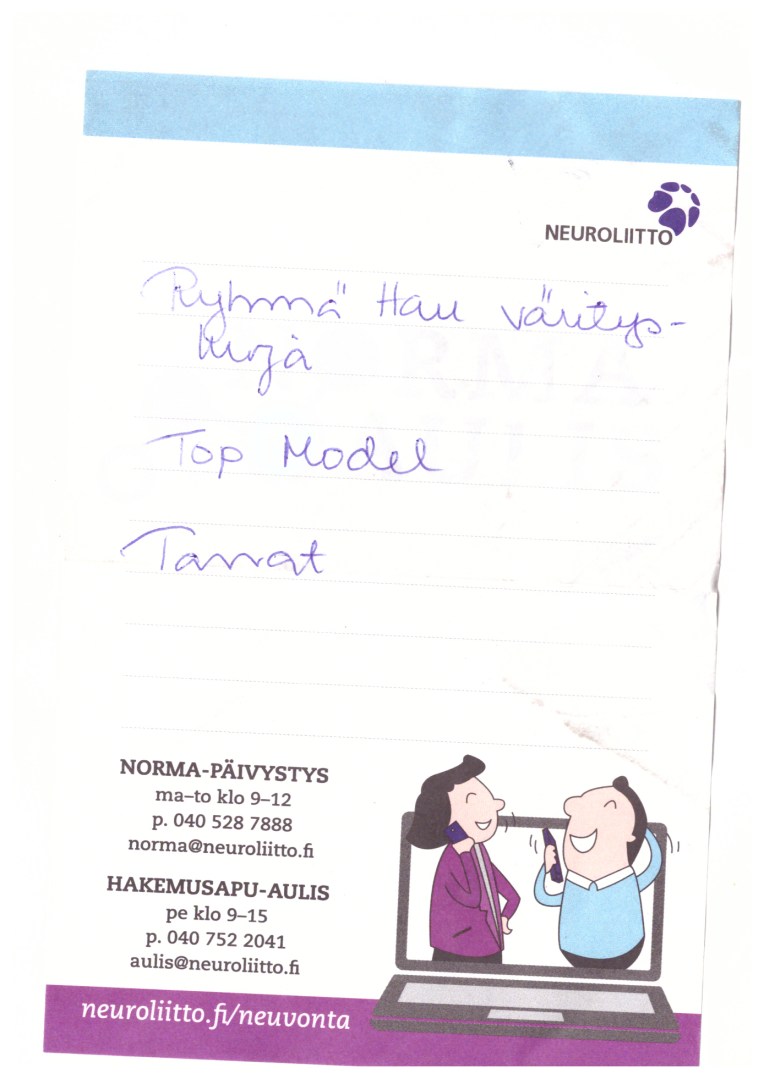 NEUROLIITTO
Ryhmä Hau väritys-
kirja
Top Model
Tarrat
NORMA-PÄIVYSTYS
ma–to klo 9–12
p. 040 528 7888
norma@neuroliitto.fi
HAKEMUSAPU-AULIS
pe klo 9–15
p. 040 752 2041
aulis@neuroliitto.fi
neuroliitto.fi/neuvonta